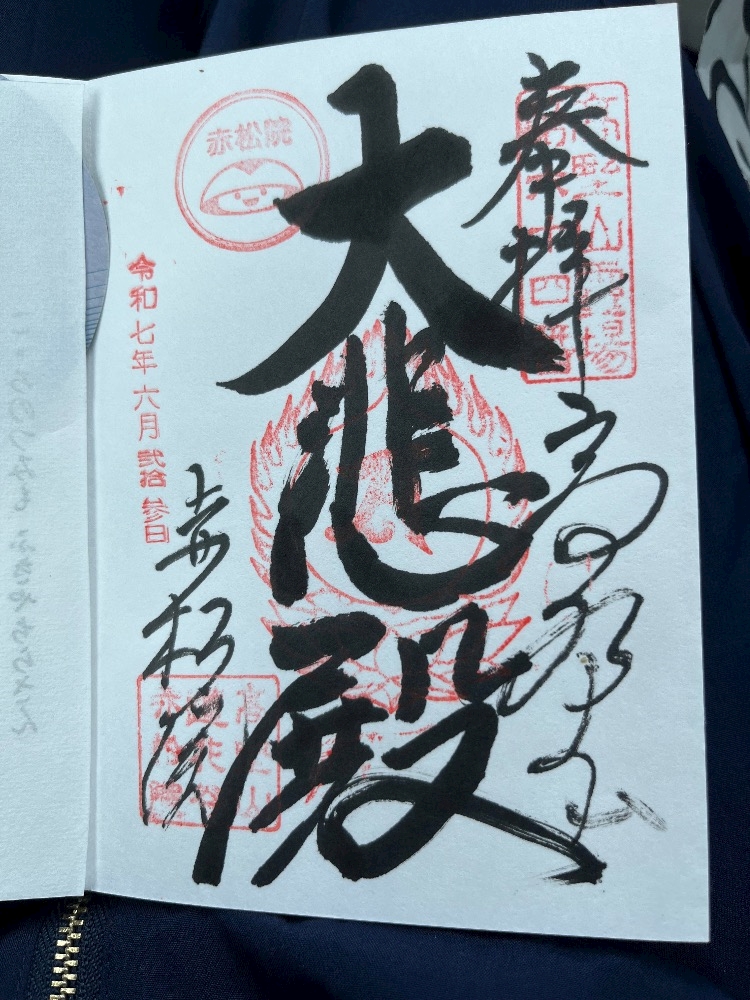 奉拝
高野山
高野山霊場
大悲殿
赤松院
令和七年六月弐拾参日
赤松院